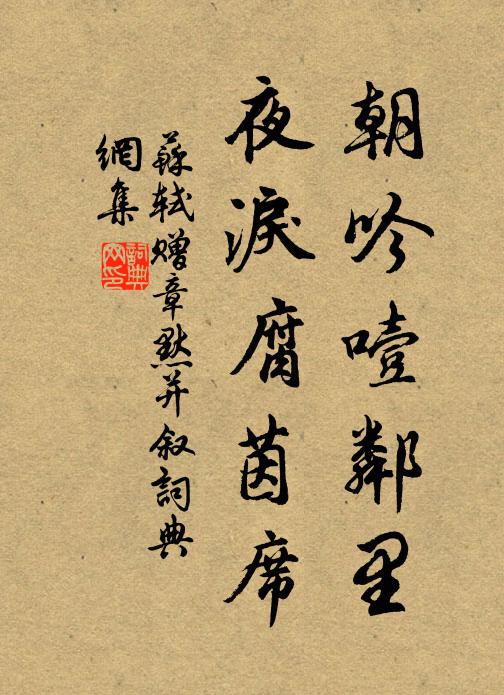 朝吟噎鄰里
夜淚腐茵席
蘇軾贈章默并叙詞典
網集
詞典
网印